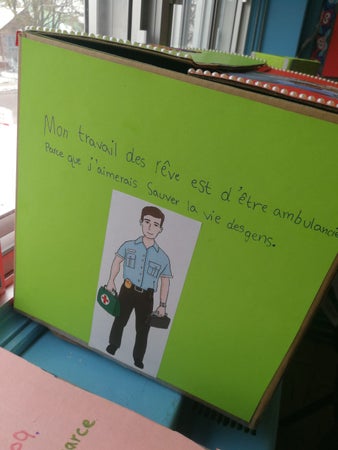 Mon travail des rêve est d'être ambulancie
Parce que j'aimerais Sauver la vie des gens.
arce